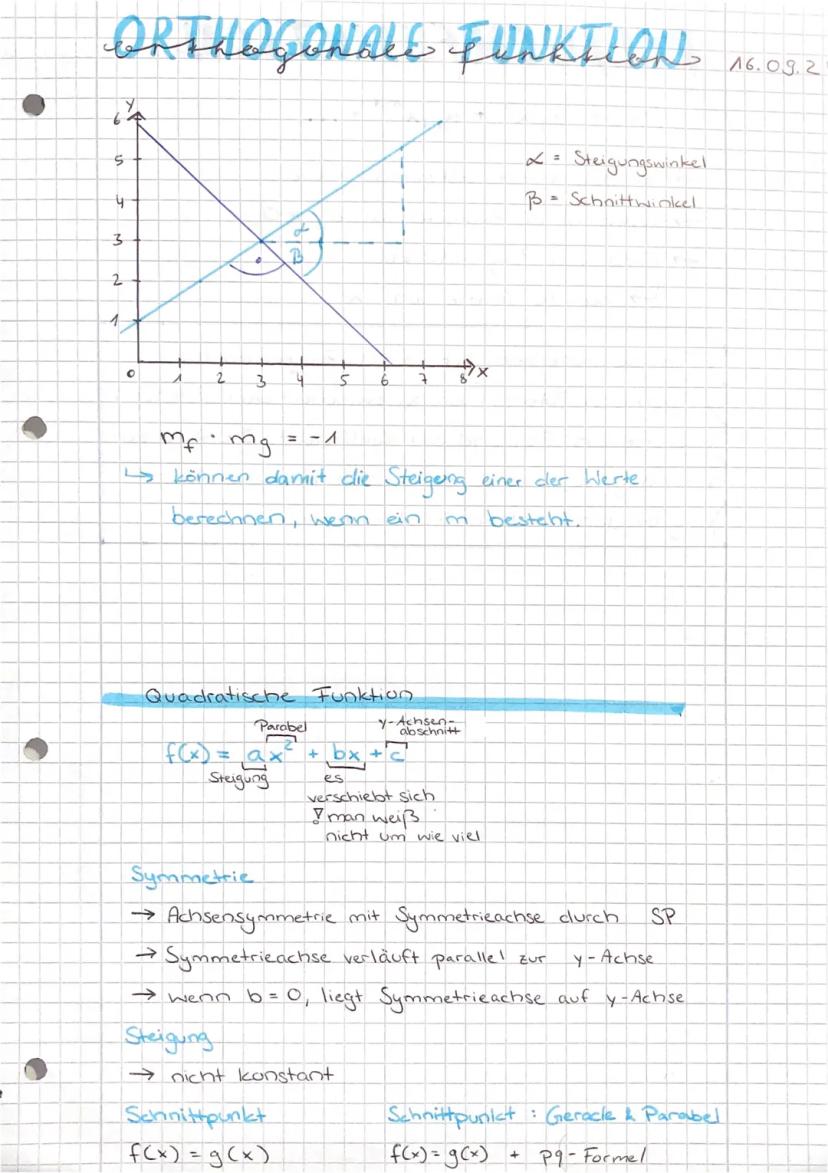 ORTHOGONALE FUNKTION
orthogonale Funktion
16.09.2
y
6
5
4
3
2
1
0 1 2 3 4 5 6 7 8 x
α
β
α = Steigungswinkel
β = Schnittwinkel
mf · mg = -1
↳ können damit die Steigung einer der Werte
berechnen, wenn ein m besteht.
Quadratische Funktion
Parabel
y-Achsen-
abschnitt
f(x) = ax² + bx + c
Steigung
es
verschiebt sich
! man weiß
nicht um wie viel
Symmetrie
→ Achsensymmetrie mit Symmetrieachse durch SP
→ Symmetrieachse verläuft parallel zur y-Achse
→ wenn b = 0, liegt Symmetrieachse auf y-Achse
Steigung
→ nicht konstant
Schnittpunkt
f(x) = g(x)
Schnittpunkt : Gerade & Parabel
f(x) = g(x) + pq-Formel